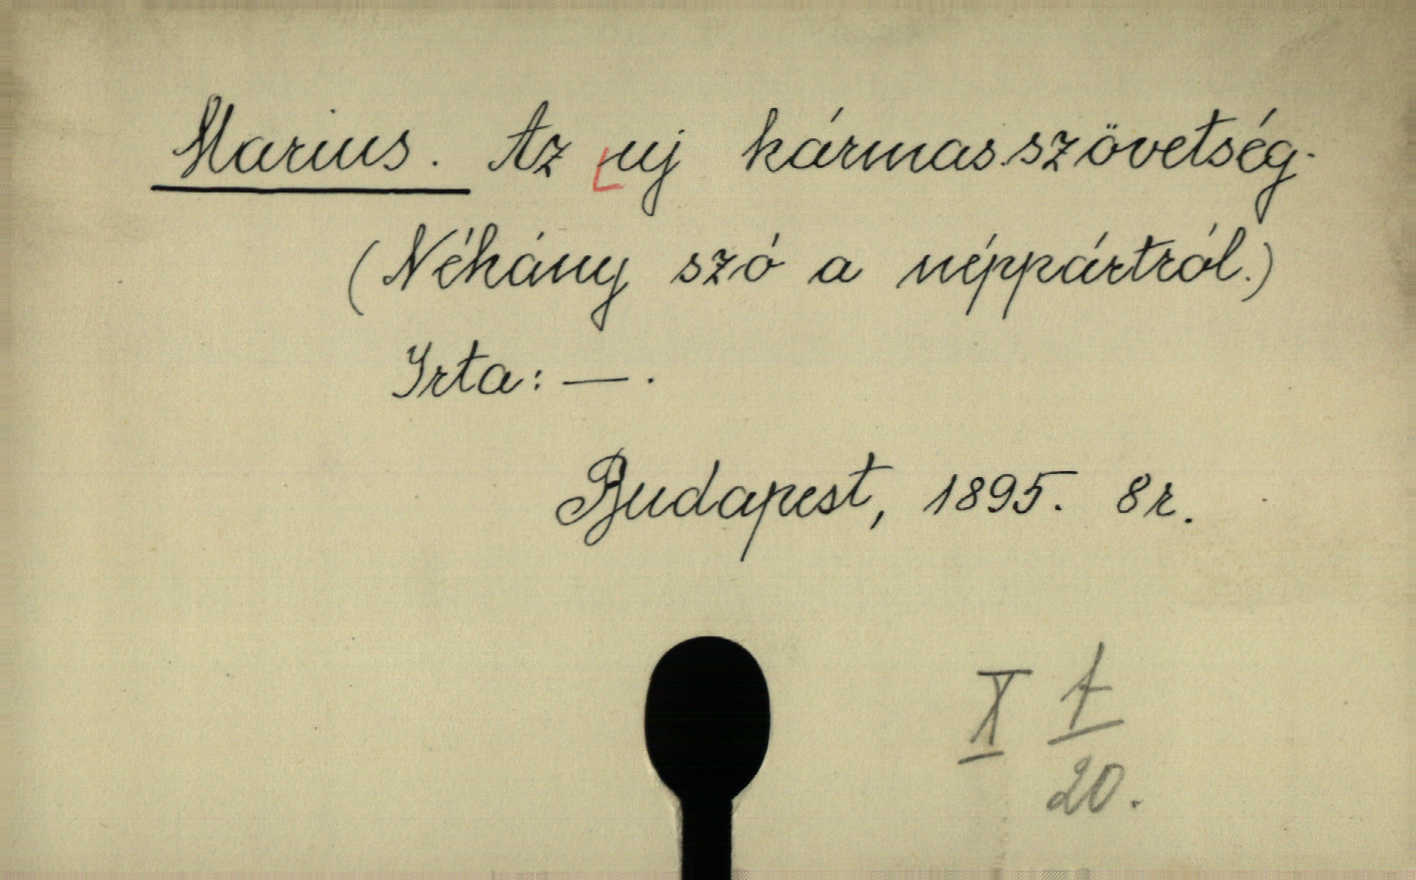 Marius. Az uj hármas szövetség.
(Néhány szó a néppártról.)
Irta: — .
Budapest, 1895. 8r.
X
20.